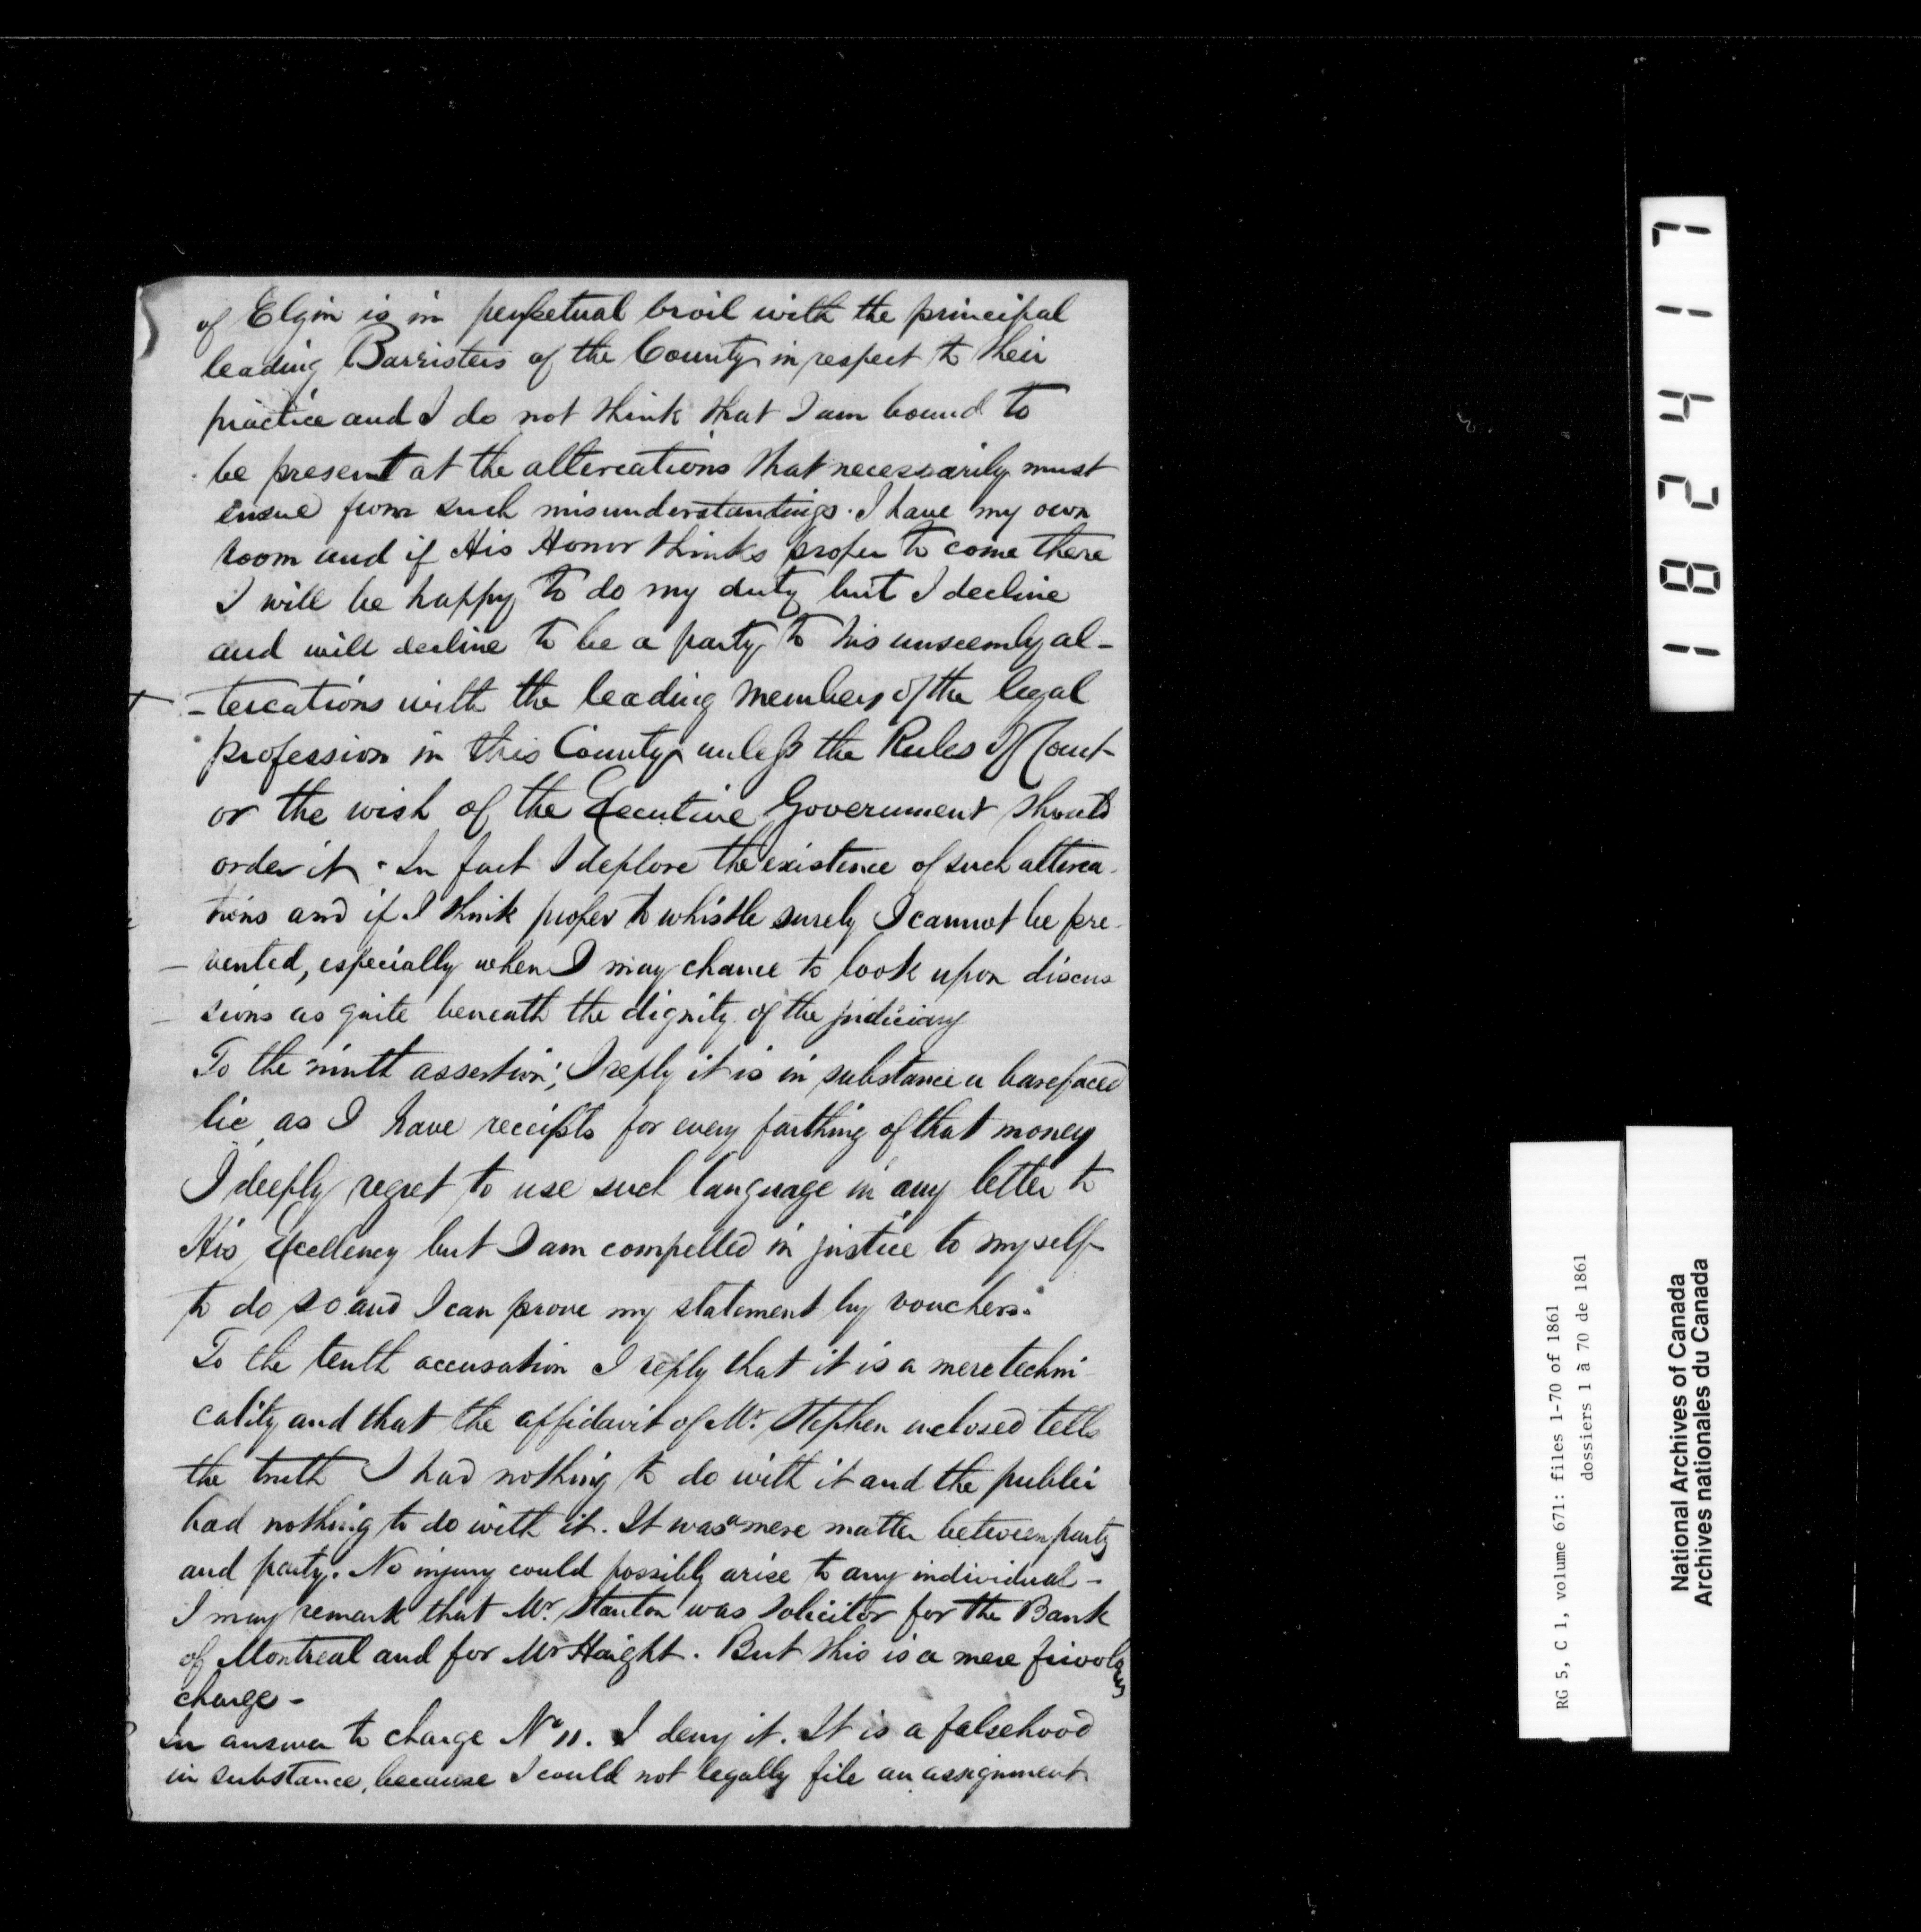 of Elgin is in perpetual broil with the principal
leading Barristers of the County in respect to their
practice and I do not think that I am bound to
be present at the altercations that necessarily must
ensue from such misunderstandings. I have my own
room and if His Honor thinks proper to come there
I will be happy to do my duty but I decline
and will decline to be a party to his unseemly al-
-tercations with the leading members of the legal
profession in this County unless the Rules of Court
or the wish of the Executive Government should
order it. In fact I deplore the existence of such alterca-
tions and if I think proper to whistle surely I cannot be pre-
-vented, especially when I may chance to look upon discus
sions as quite beneath the dignity of the judiciary
To the "ninth assertion", I reply it is in substance a barefaced
lie, as I have receipts for every farthing of that money
I deeply regret to use such language in any letter to
His Excellency but I am compelled in justice to myself
to do so and I can prove my statement by vouchers.
To the tenth accusation I reply that it is a mere techni-
cality and that the affidavit of Mr. Stephen inclosed tells
the truth I had nothing to do with it and the public
had nothing to do with it. It was a mere matter between party
and party. No injury could possibly arise to any individual -
I may remark that Mr. Stanton was Solicitor for the Bank
of Montreal and for Mr Haight. But this is a mere frivolous
charge -
In answer to charge No 11. I deny it. It is a falsehood
in substance, because I could not legally file an assignment
182417
RG 5, C 1, volume 671: files 1-70 of 1861
dossiers 1 à 70 de 1861
National Archives of Canada
Archives nationales du Canada